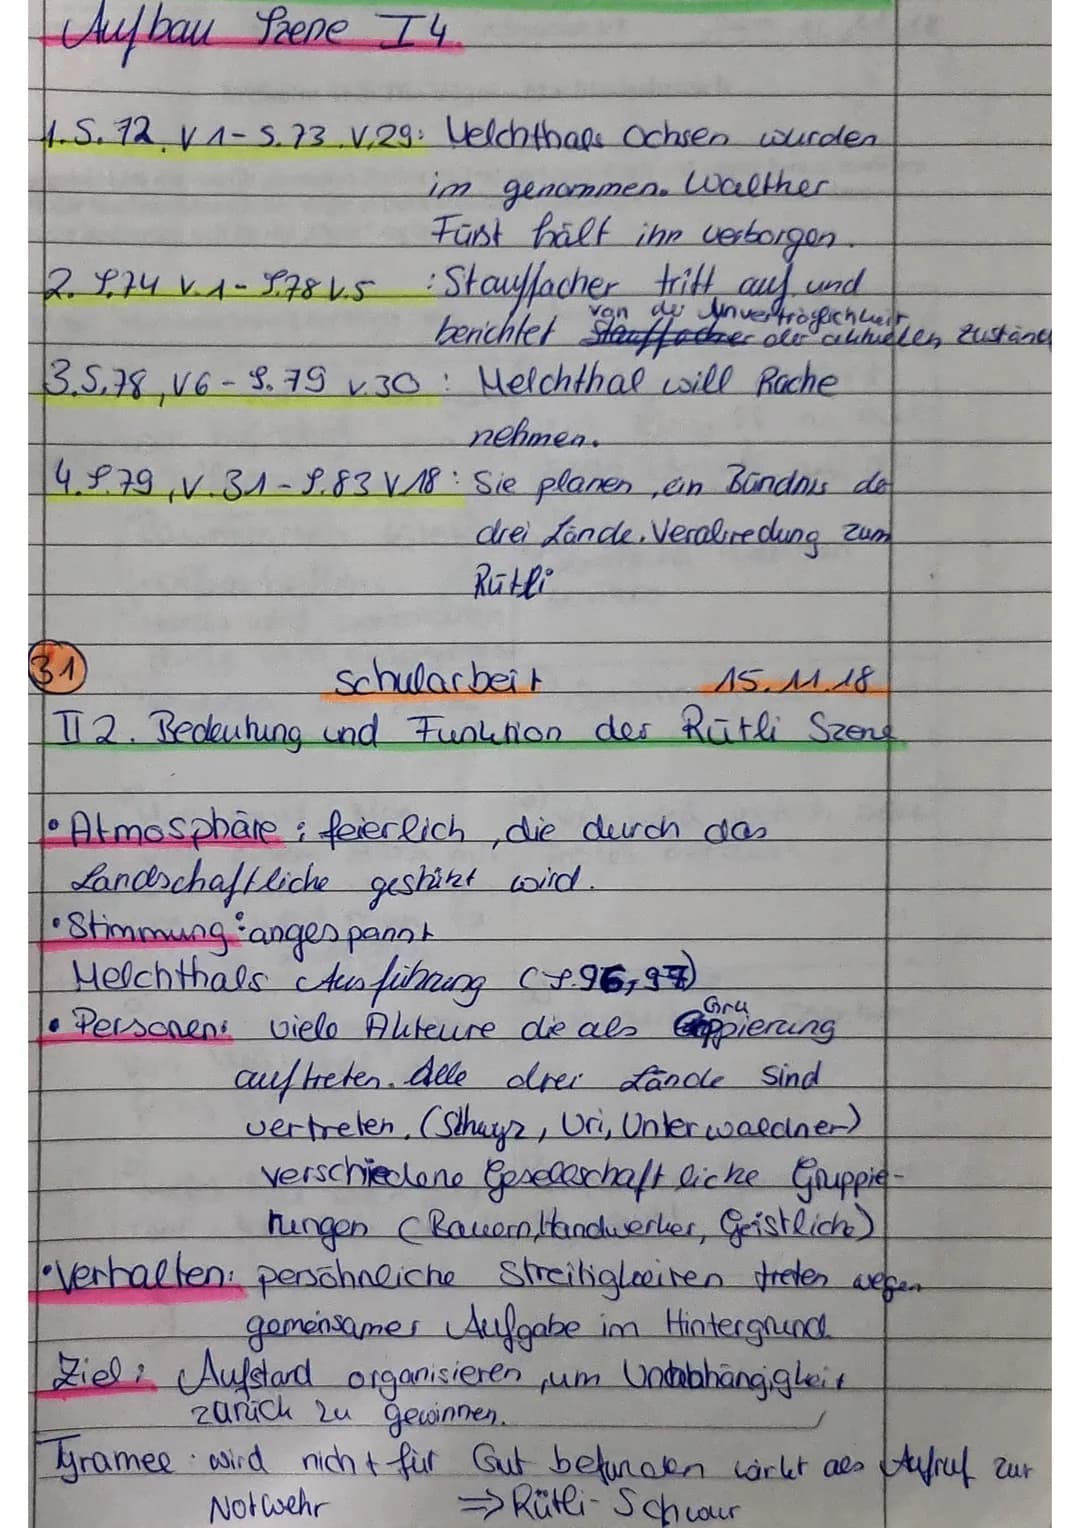 Aufbau Szene I 4.
1. S. 72, V 1 - S. 73 V.29: Melchthals Ochsen wurden
im genommen. Walther
Fürst hält ihn verborgen.
2. S.74 V.1 - S.78 V.5 : Stauffacher tritt auf und
von der Unverträglichkeit
berichtet Stauffacher der aktuellen Zustände
3. S.78, V6 - S. 79 V.30 : Melchthal will Rache
nehmen.
4. S.79, V.31 - S.83 V18 : Sie planen, ein Bündnis der
drei Lände. Verabredung zum
Rütli
31 Schularbeit 15.11.18
II 2. Bedeutung und Funktion der Rütli Szene
• Atmosphäre : feierlich, die durch das
Landschaftliche gestützt wird.
• Stimmung : angespannt
Melchthals Ausführung (S.96, 97)
• Personen: viele Akteure die als Gruppierung
auftreten. Alle drei Lände Sind
vertreten. (Schwyz, Uri, Unterwaldner)
verschiedene Gesellschaftliche Gruppie-
rungen (Bauern, Handwerker, Geistliche)
• Verhalten: persöhnliche Streitigkeiten treten wegen
gemeinsamer Aufgabe im Hintergrund
Ziel: Aufstand organisieren, um Unabhängigkeit
zurück zu gewinnen.
wird nicht für Gut befunden wirkt als Aufruf zur
Notwehr => Rütli-Schwur